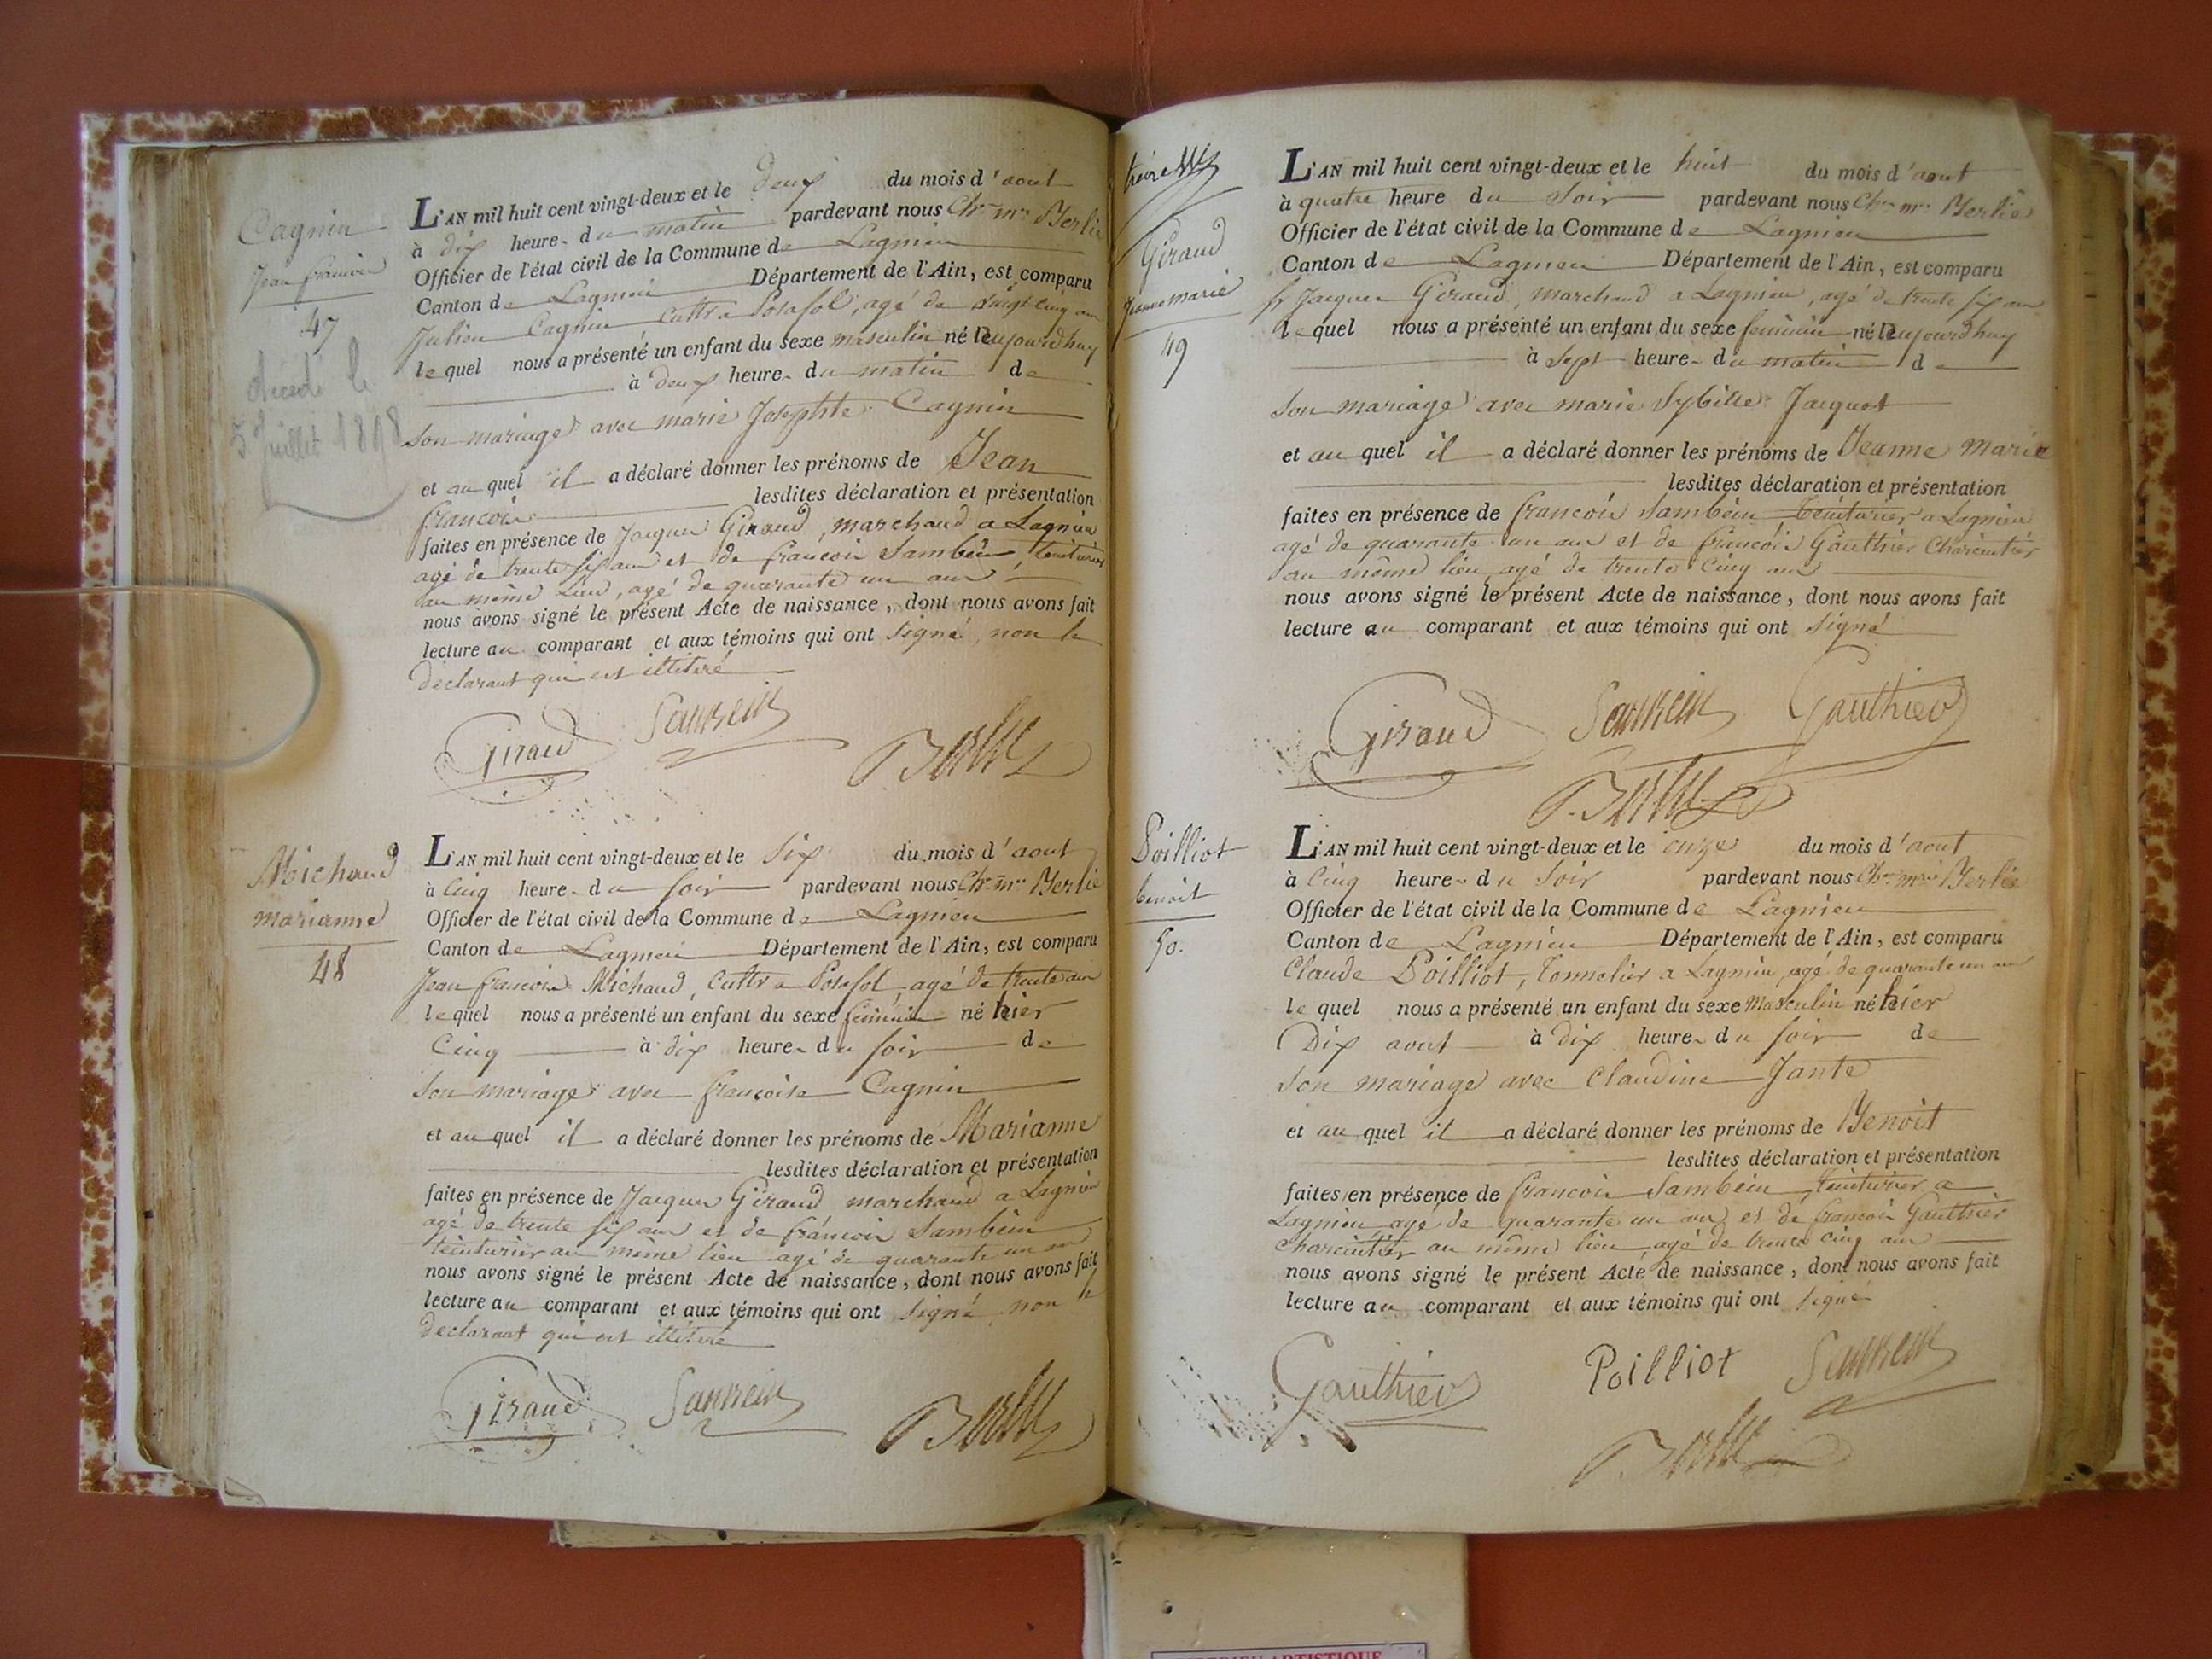 Cagnin
Jean françois
47
décédé le
5 juillet 1898
L'AN mil huit cent vingt-deux et le deux du mois d'aout
à dix heures du matin pardevant nous Chles mie Berlie
Officier de l'état civil de la Commune de Lagnieu
Canton de Lagnieu Département de l'Ain, est comparu
Julien Cagnin Cultr a Posafol, agé de vingt cinq ans
lequel nous a présenté un enfant du sexe masculin né le aujourdhuy
à deux heures du matin de
Son mariage avec marie Josephte Cagnin
et auquel il a déclaré donner les prénoms de Jean
françois lesdites déclaration et présentation
faites en présence de Jacques Giraud, marchand a Lagnieu
agé de trente six ans et de francois Sambein, teinturier
au même lieu, agé de quarante un ans
nous avons signé le présent Acte de naissance, dont nous avons fait
lecture au comparant et aux témoins qui ont signé non le
déclarant qui est illitéré
Giraud Sambein Berlie
Michaud
marianne
48
L'AN mil huit cent vingt-deux et le six du mois d'aout
à cinq heures du soir pardevant nous Berlie
Officier de l'état civil de la Commune de Lagnieu
Canton de Lagnieu Département de l'Ain, est comparu
Jean francois Michaud, Cultr a Posafol agé de trente ans
lequel nous a présenté un enfant du sexe féminin né hier
Cinq à dix heures du soir de
Son mariage avec francoise Cagnin
et auquel il a déclaré donner les prénoms de Marianne
lesdites déclaration et présentation
faites en présence de Jacques Giraud marchand a Lagnieu
agé de trente six ans et de francois Sambein
teinturier au même lieu agé de quarante un ans
nous avons signé le présent Acte de naissance, dont nous avons fait
lecture au comparant et aux témoins qui ont signé non le
déclarant qui est illitéré
Giraud Sambein Berlie
Giraud
Jeanne marie
49
L'AN mil huit cent vingt-deux et le huit du mois d'aout
à quatre heure du soir pardevant nous Berlie
Officier de l'état civil de la Commune de Lagnieu
Canton de Lagnieu Département de l'Ain, est comparu
Sr Jacques Giraud, marchand a Lagnieu, agé de trente six ans
lequel nous a présenté un enfant du sexe féminin né le aujourdhuy
à sept heures du matin de
Son mariage avec marie Sybille Jacquet
et auquel il a déclaré donner les prénoms de Jeanne Marie
lesdites déclaration et présentation
faites en présence de francois Sambein teinturier a Lagnieu
agé de quarante un ans et de francois Gauthier Charcutier
au même lieu, agé de trente cinq ans
nous avons signé le présent Acte de naissance, dont nous avons fait
lecture au comparant et aux témoins qui ont signé
Giraud Sambein Gauthier
Berlie
Poilliot
benoit
50.
L'AN mil huit cent vingt-deux et le onze du mois d'aout
à cinq heures du soir pardevant nous Berlie
Officier de l'état civil de la Commune de Lagnieu
Canton de Lagnieu Département de l'Ain, est comparu
Claude Poilliot, Tonnelier a Lagnieu, agé de quarante un ans
lequel nous a présenté un enfant du sexe Masculin né hier
Dix aout à dix heures du soir de
Son mariage avec Claudine Jante
et auquel il a déclaré donner les prénoms de Benoit
lesdites déclaration et présentation
faites en présence de francois Sambein, teinturier a
Lagnieu agé de quarante un ans et de francois Gauthier
Charcutier au même lieu, agé de trente cinq ans
nous avons signé le présent Acte de naissance, dont nous avons fait
lecture au comparant et aux témoins qui ont signé
Gauthier Poilliot Sambein
Berlie
ARTISTIQUE